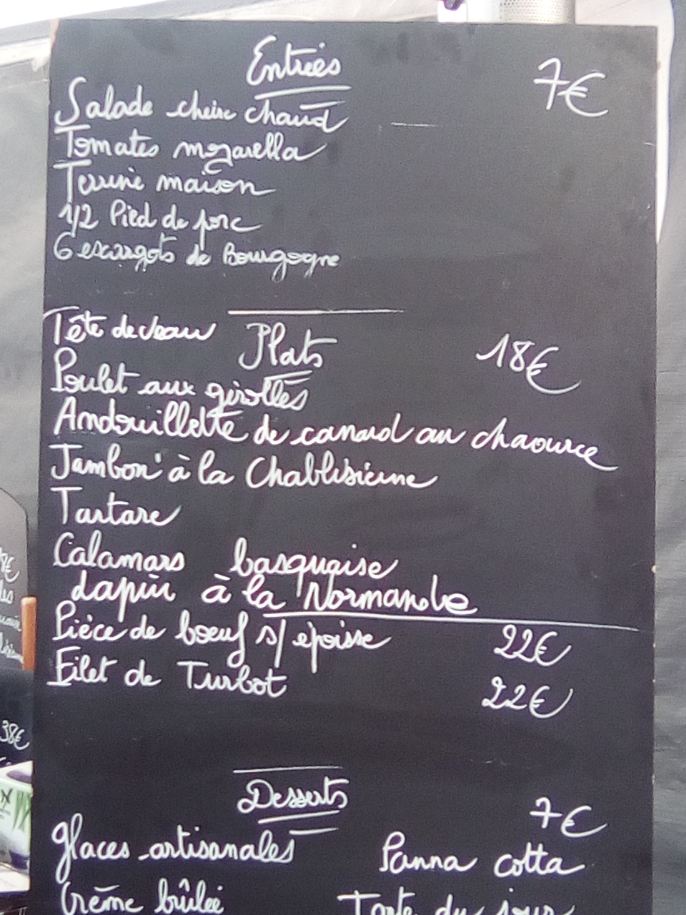 Entrées 7€
Salade chèvre chaud
Tomates mozarella
Terrine maison
1/2 Pied de porc
6 escargots de Bourgogne
Tête de veau
Plats 18€
Poulet aux girolles
Andouillette de canard au chaource
Jambon à la Chablisienne
Tartare
Calamars basquaise
Lapin à la Normande
Pièce de boeuf s/ époisse 22€
Filet de Turbot 22€
Desserts 7€
Glaces artisanales Panna cotta
Crème brûlée Tarte du jour
38€